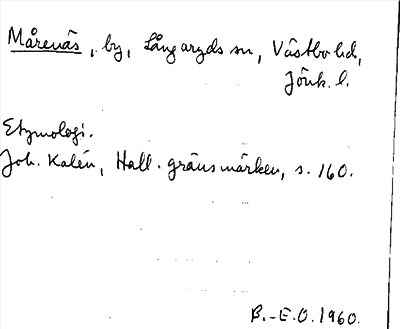 Mårenäs, by, Långaryds sn, Västbo hd,
Jönk. l.
Etymologi.
Joh. Kalén, Hall. gränsmärken, s. 160.
B.-E.O. 1960.